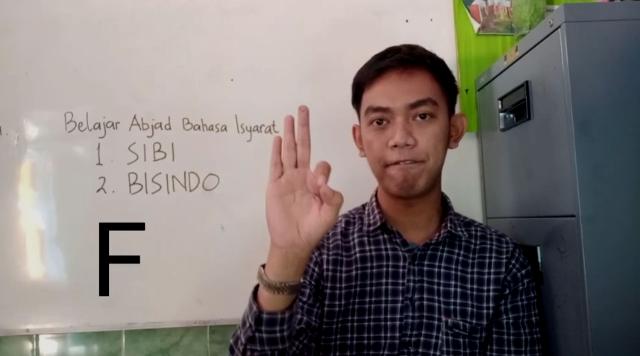 Belajar Abjad Bahasa Isyarat
1. SIBI
2. BISINDO
F